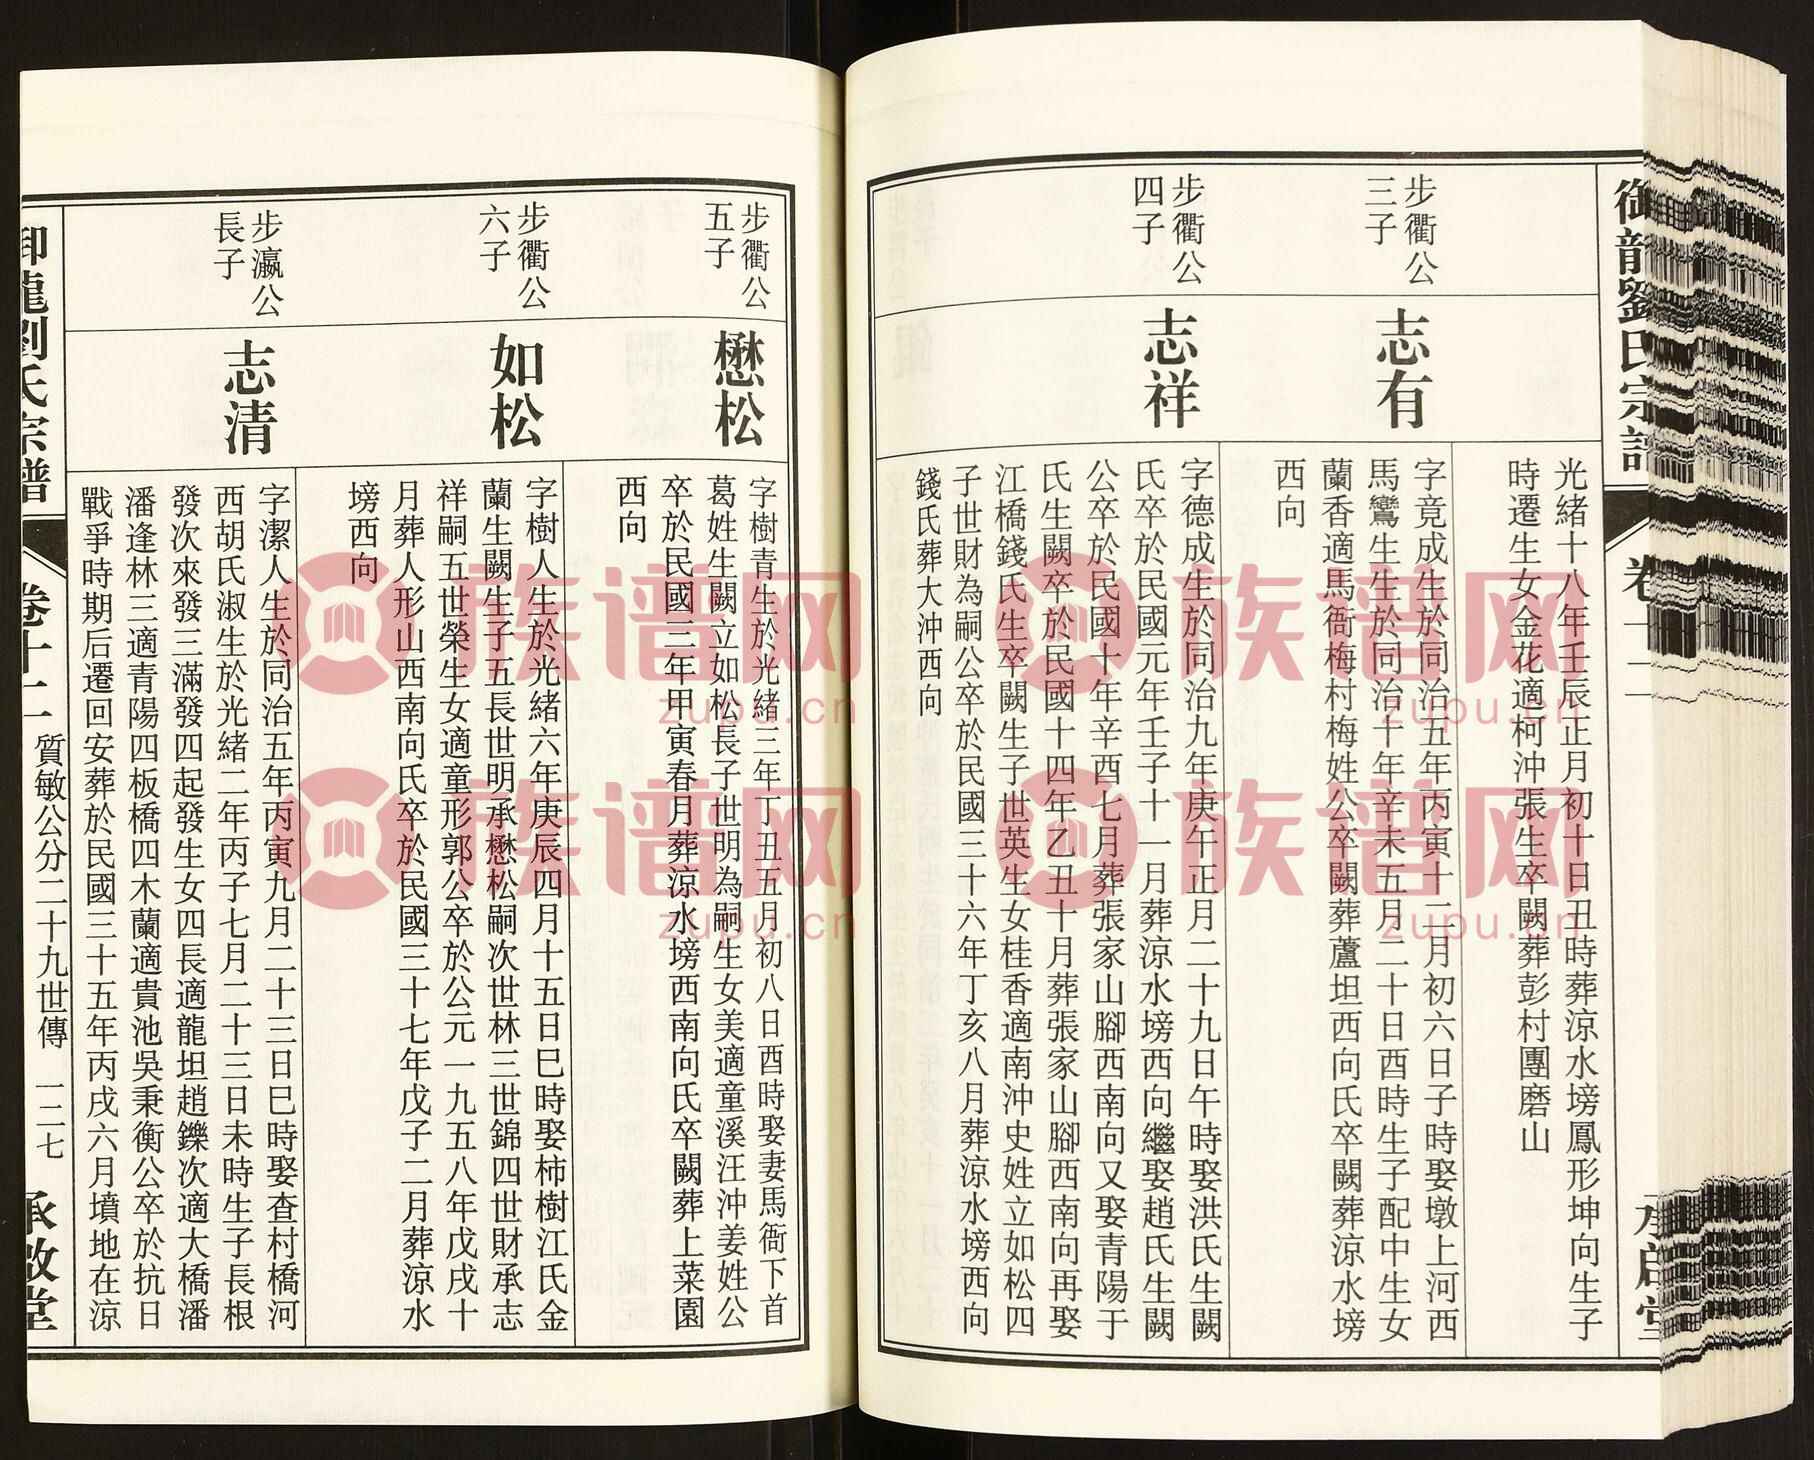 御龍劉氏宗譜
光緒十八年壬辰正月初十日丑時葬涼水塝鳳形坤向生子
時遷生女金花適柯沖張生卒闕葬彭村團磨山
步衢公
三子
志有
字竟成生於同治五年丙寅十二月初六日子時娶墩上河西
馬鸞生生於同治十年辛未五月二十日酉時生子配中生女
蘭香適馬衙梅村梅姓公卒闕葬蘆坦西向氏卒闕葬涼水塝
西向
步衢公
四子
志祥
字德成生於同治九年庚午正月二十九日午時娶洪氏生闕
氏卒於民國元年壬子十一月葬涼水塝西向繼娶趙氏生闕
公卒於民國十年辛酉七月葬張家山腳西南向又娶青陽于
氏生闕卒於民國十四年乙丑十月葬張家山腳西南向再娶
江橋錢氏生卒闕生子世英生女桂香適南沖史姓立如松四
子世財為嗣公卒於民國三十六年丁亥八月葬涼水塝西向
錢氏葬大沖西向
步衢公
五子
懋松
字樹青生於光緒三年丁丑五月初八日酉時娶妻馬衙下首
葛姓生闕立如松長子世明為嗣生女美適童溪汪沖姜姓公
卒於民國三年甲寅春月葬涼水塝西南向氏卒闕葬上菜園
西向
步衢公
六子
如松
字樹人生於光緒六年庚辰四月十五日巳時娶柿樹江氏金
蘭生闕生子五長世明承懋松嗣次世林三世錦四世財承志
祥嗣五世榮生女適童形郭公卒於公元一九五八年戊戌十
月葬人形山西南向氏卒於民國三十七年戊子二月葬涼水
塝西向
步瀛公
長子
志清
字潔人生於同治五年丙寅九月二十三日巳時娶查村橋河
西胡氏淑生於光緒二年丙子七月二十三日未時生子長根
發次來發三滿發四起發生女四長適龍坦趙鑠次適大橋潘
潘逢林三適青陽四板橋四木蘭適貴池吳秉衡公卒於抗日
戰爭時期后遷回安葬於民國三十五年丙戌六月墳地在涼
御龍劉氏宗譜
卷十二
質敏公分二十九世傳
一二七
承啟堂
族谱网
zupu.cn
族谱网
zupu.cn
族谱网
zupu.cn
族谱网
zupu.cn